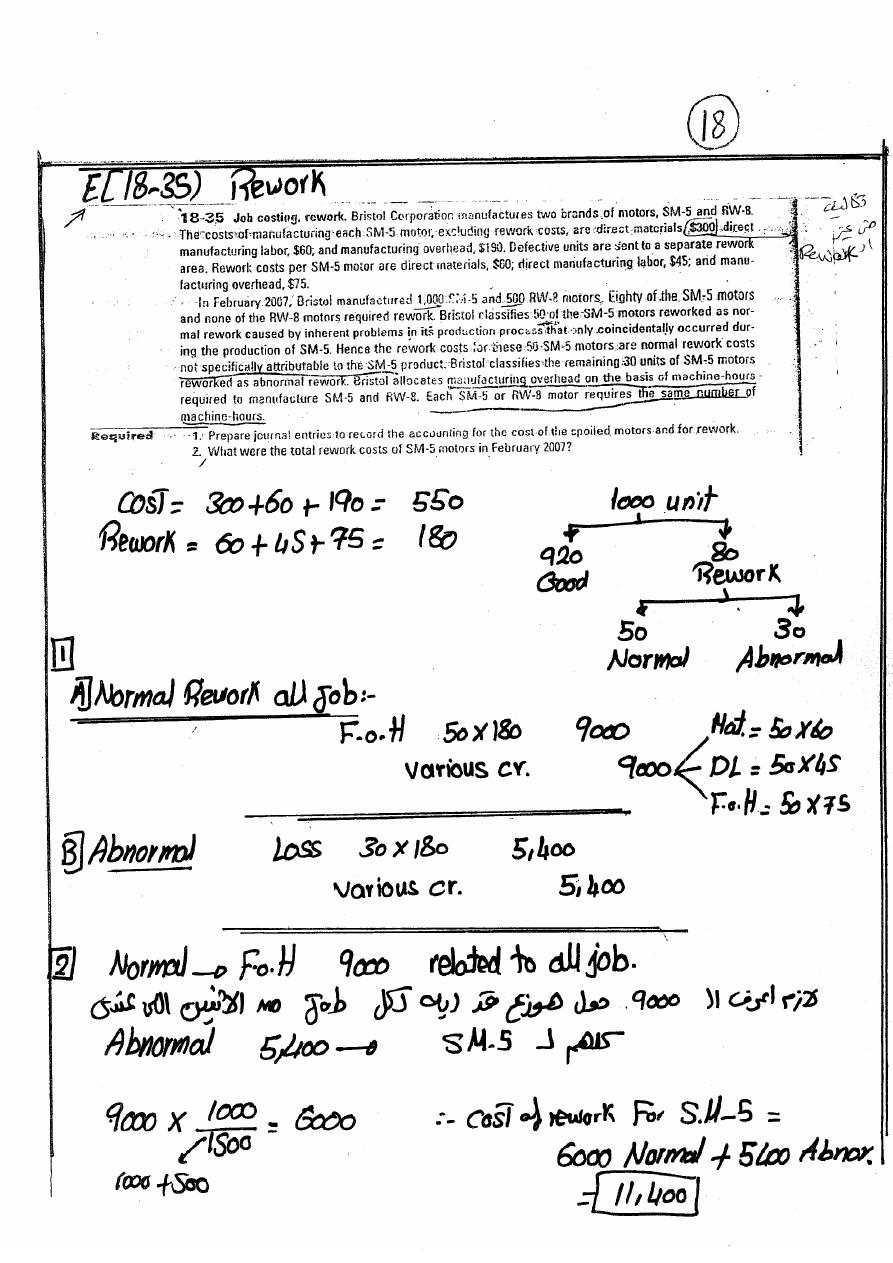 18
E[18-35) Rework
18-35 Job costing, rework. Bristol Corporation manufactures two brands of motors, SM-5 and RW-8.
The costs of manufacturing each SM-5 motor, excluding rework costs, are direct materials, $300; direct
manufacturing labor, $60; and manufacturing overhead, $190. Defective units are sent to a separate rework
area. Rework costs per SM-5 motor are direct materials, $60; direct manufacturing labor, $45; and manu-
facturing overhead, $75.
In February 2007, Bristol manufactured 1,000 SM-5 and 500 RW-8 motors. Eighty of the SM-5 motors
and none of the RW-8 motors required rework. Bristol classifies 50 of the SM-5 motors reworked as nor-
mal rework caused by inherent problems in its production process that only coincidentally occurred dur-
ing the production of SM-5. Hence the rework costs for these 50 SM-5 motors are normal rework costs
not specifically attributable to the SM-5 product. Bristol classifies the remaining 30 units of SM-5 motors
reworked as abnormal rework. Bristol allocates manufacturing overhead on the basis of machine-hours
required to manufacture SM-5 and RW-8. Each SM-5 or RW-8 motor requires the same number of
machine-hours.
Rework
Required 1. Prepare journal entries to record the accounting for the cost of the spoiled motors and for rework.
2. What were the total rework costs of SM-5 motors in February 2007?
COST = 300+60+190 = 550
Rework = 60+45+75 = 180
1000 unit
920 80
Good Rework
50 30
Normal Abnormal
1
A] Normal Rework all Job:-
F.o.H 50X180 9000
Various cr. 9000
Mat. = 50X60
DL = 50X45
F.o.H = 50X75
B] Abnormal Loss 30X180 5,400
Various cr. 5,400
2 Normal → F.o.H 9000 related to all job.
لازم اعرف الـ 9000 دول هوزع قد ايه لكل Job من الاتنين اللى عندى
Abnormal 5,400 → كلهم لـ SM-5
9000 X 1000/1500 = 6000
1000+500
∴ Cost of rework For S.M-5 =
6000 Normal + 5400 Abnor.
= 11,400